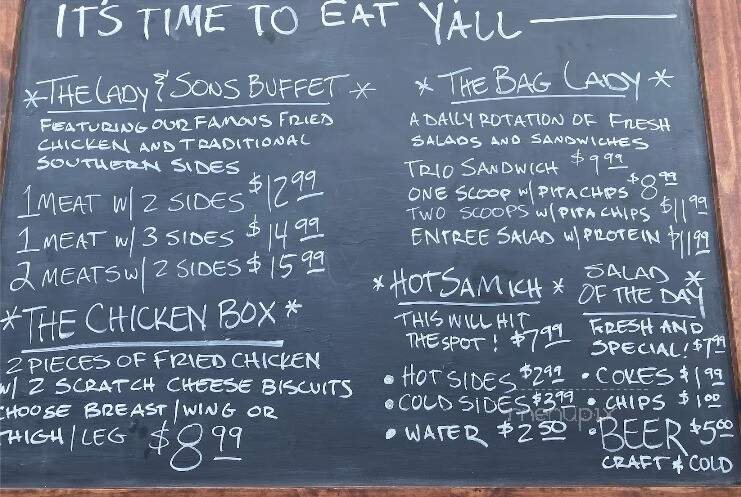 IT'S TIME TO EAT YA'LL
*THE LADY & SONS BUFFET*
FEATURING OUR FAMOUS FRIED
CHICKEN AND TRADITIONAL
SOUTHERN SIDES
1 MEAT W/ 2 SIDES $12.99
1 MEAT W/ 3 SIDES $14.99
2 MEATS W/ 2 SIDES $15.99
*THE CHICKEN BOX*
2 PIECES OF FRIED CHICKEN
W/ 2 SCRATCH CHEESE BISCUITS
CHOOSE BREAST/WING OR
THIGH/LEG $8.99
*THE BAG LADY*
A DAILY ROTATION OF FRESH
SALADS AND SANDWICHES
TRIO SANDWICH $9.99
ONE SCOOP W/ PITA CHIPS $8.99
TWO SCOOPS W/ PITA CHIPS $11.99
ENTREE SALAD W/ PROTEIN $11.99
*HOT SAMICH*
THIS WILL HIT
THE SPOT! $7.99
SALAD *
OF THE DAY
FRESH AND
SPECIAL! $7.99
• HOT SIDES $2.99
• COLD SIDES $3.99
• WATER $2.50
• COKES $1.99
• CHIPS $1.00
• BEER $5.00
CRAFT & COLD
menupix